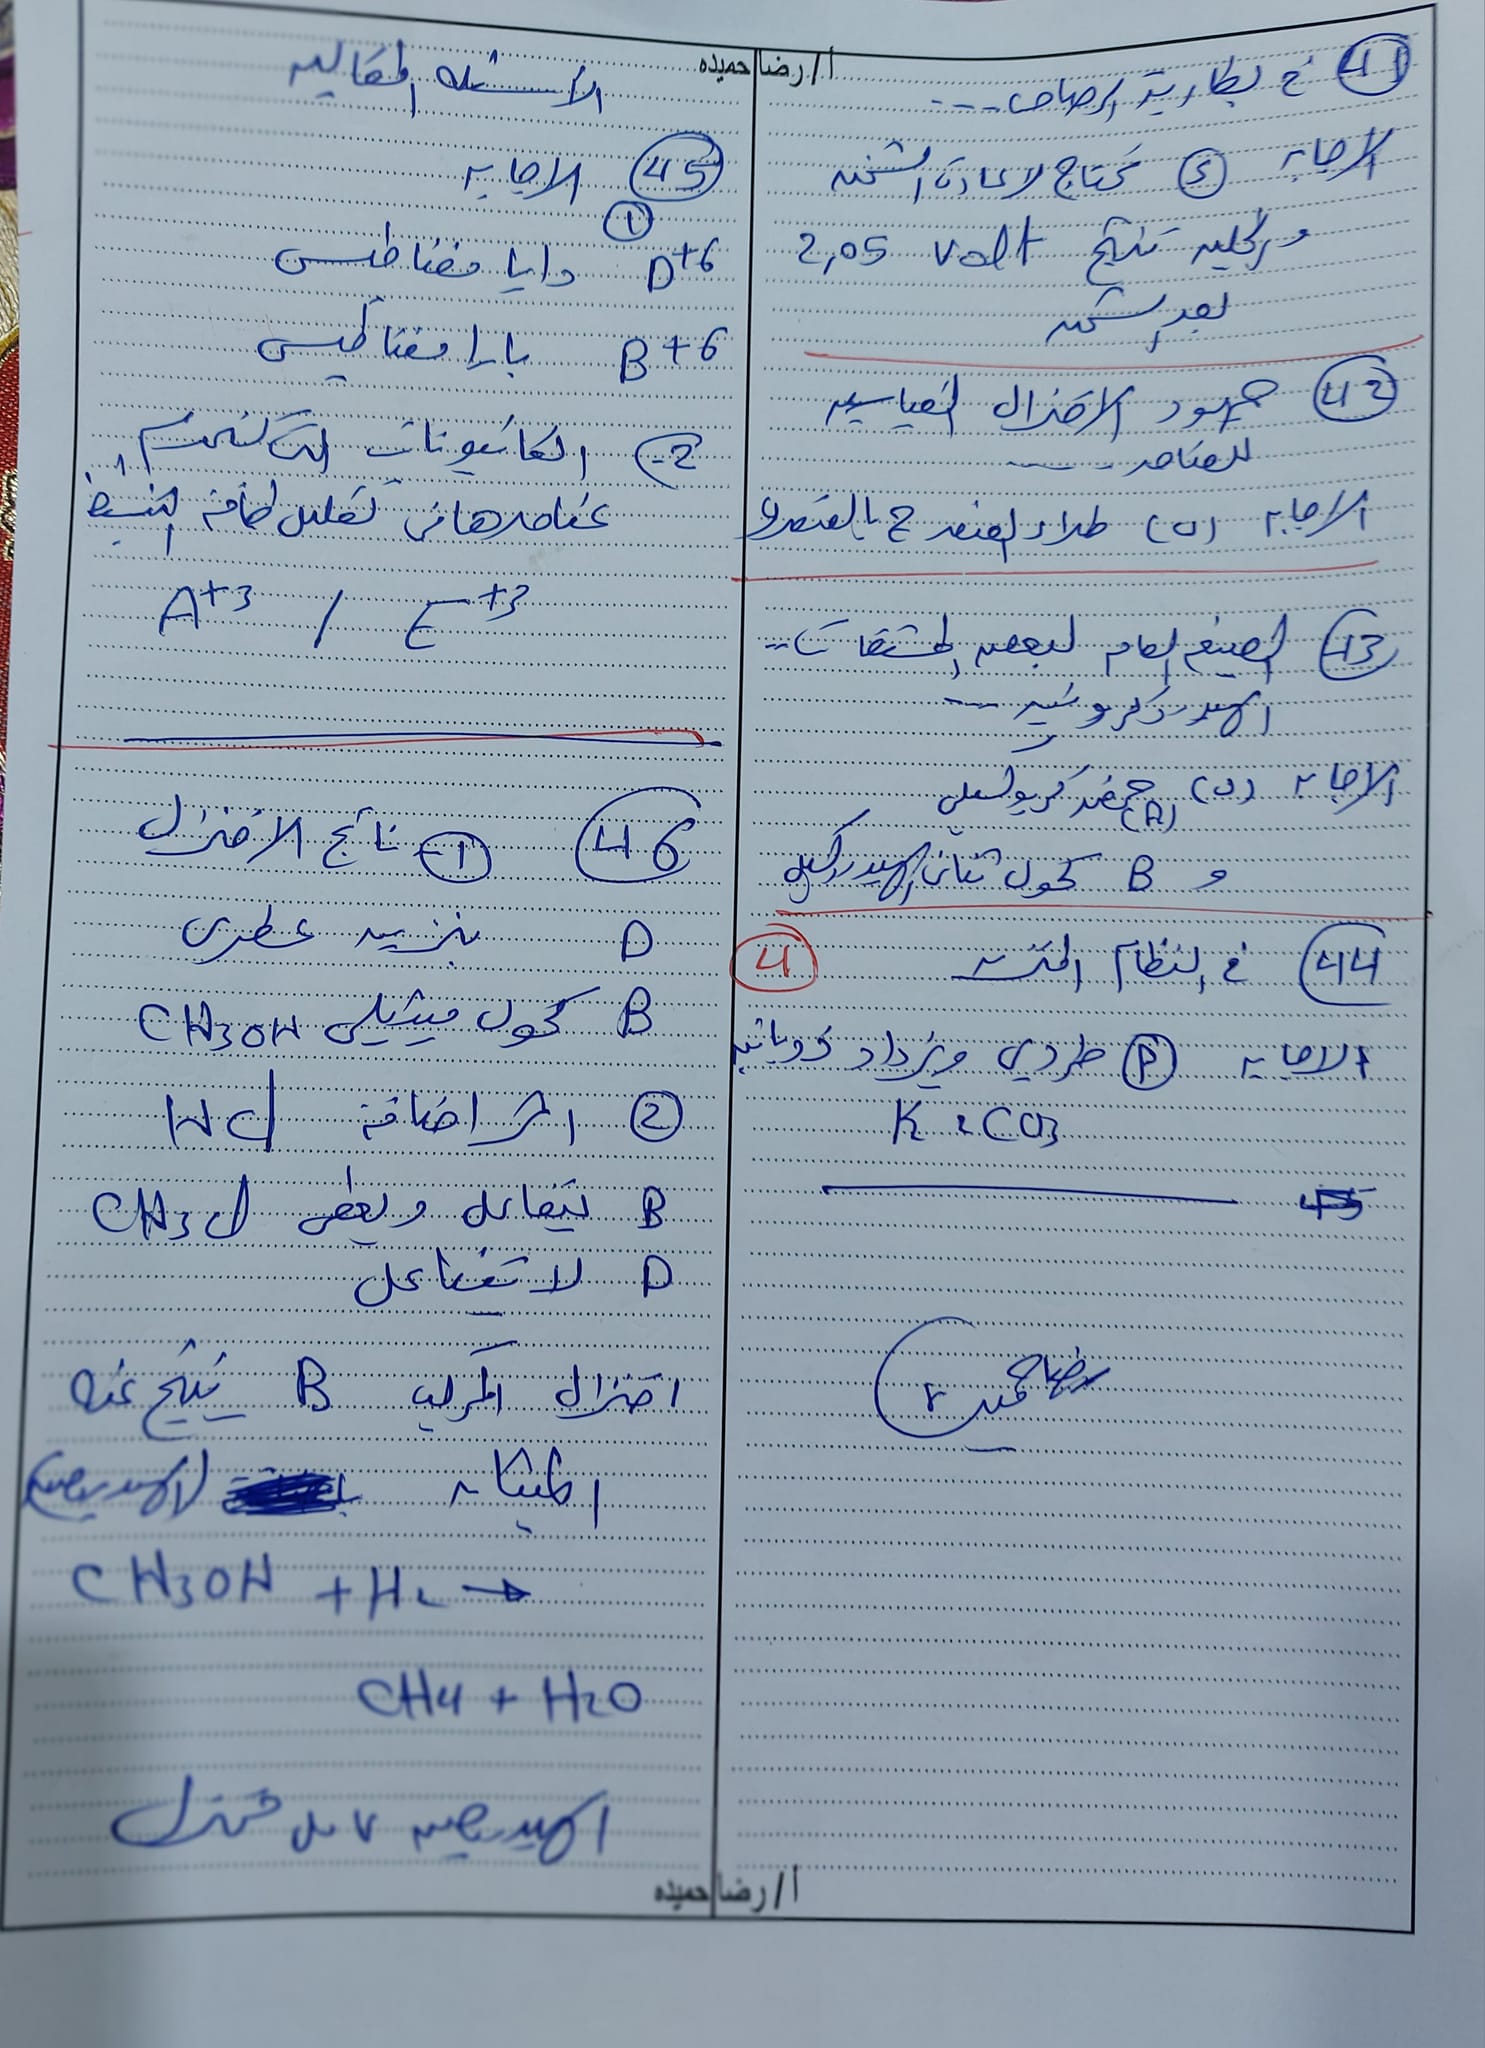 أ/رضا حميده
41 في بطارية الرصاص ----
الاجابه (د) تحتاج لاعادة الشحنه
و خليه تنتج 2,05 Volt
بعد الشحنه
42 جهود الاختزال القياسيه
للعناصر -----
الاجابه (ب) طلاء العنصر ج بالعنصر
43 الصيغه العامه لبعض المشتقات --
الهيدروكربونيه ---
الاجابه (د) (A) حمض كربوكسيلي
و B كحول ثنائى الهيدروكسيل
44 في النظام المتزن
4
الاجابه (أ) طردي ويزداد ذوبانيه
K2CO3
45
رضا حميده
الأسئله المقاليه
45 الاجابه
1
D+6 دايا مغناطيسى
B+6 بارا مغناطيسى
2- الكاتيونات التى تستخدم
عناصرها فى تقليل طاقة التنشيط
A+3 / E+3
46 1- ناتج الاختزال
D بنزين عطرى
B كحول ميثيلى CH3OH
2 اثر اضافة HCl
B يتفاعل ويعطى CH3Cl
D لا تتفاعل
اختزال المركب B ينتج عنه
الميثان (الهيدروجين)
CH3OH + H2 →
CH4 + H2O
الهيدروجين عامل مختزل
أ/رضا حميده